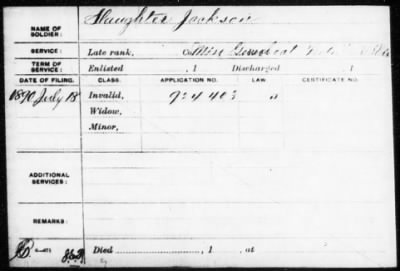 NAME OF SOLDIER: Slaughter Jackson
SERVICE: Late rank, Co. Miss Gunboat
TERM OF SERVICE: Enlisted , 1 Discharged , 1
DATE OF FILING. CLASS. APPLICATION NO. LAW. CERTIFICATE NO.
1890 July 18 Invalid, 924403
Widow,
Minor,
ADDITIONAL SERVICES:
REMARKS:
Died , 1 , at